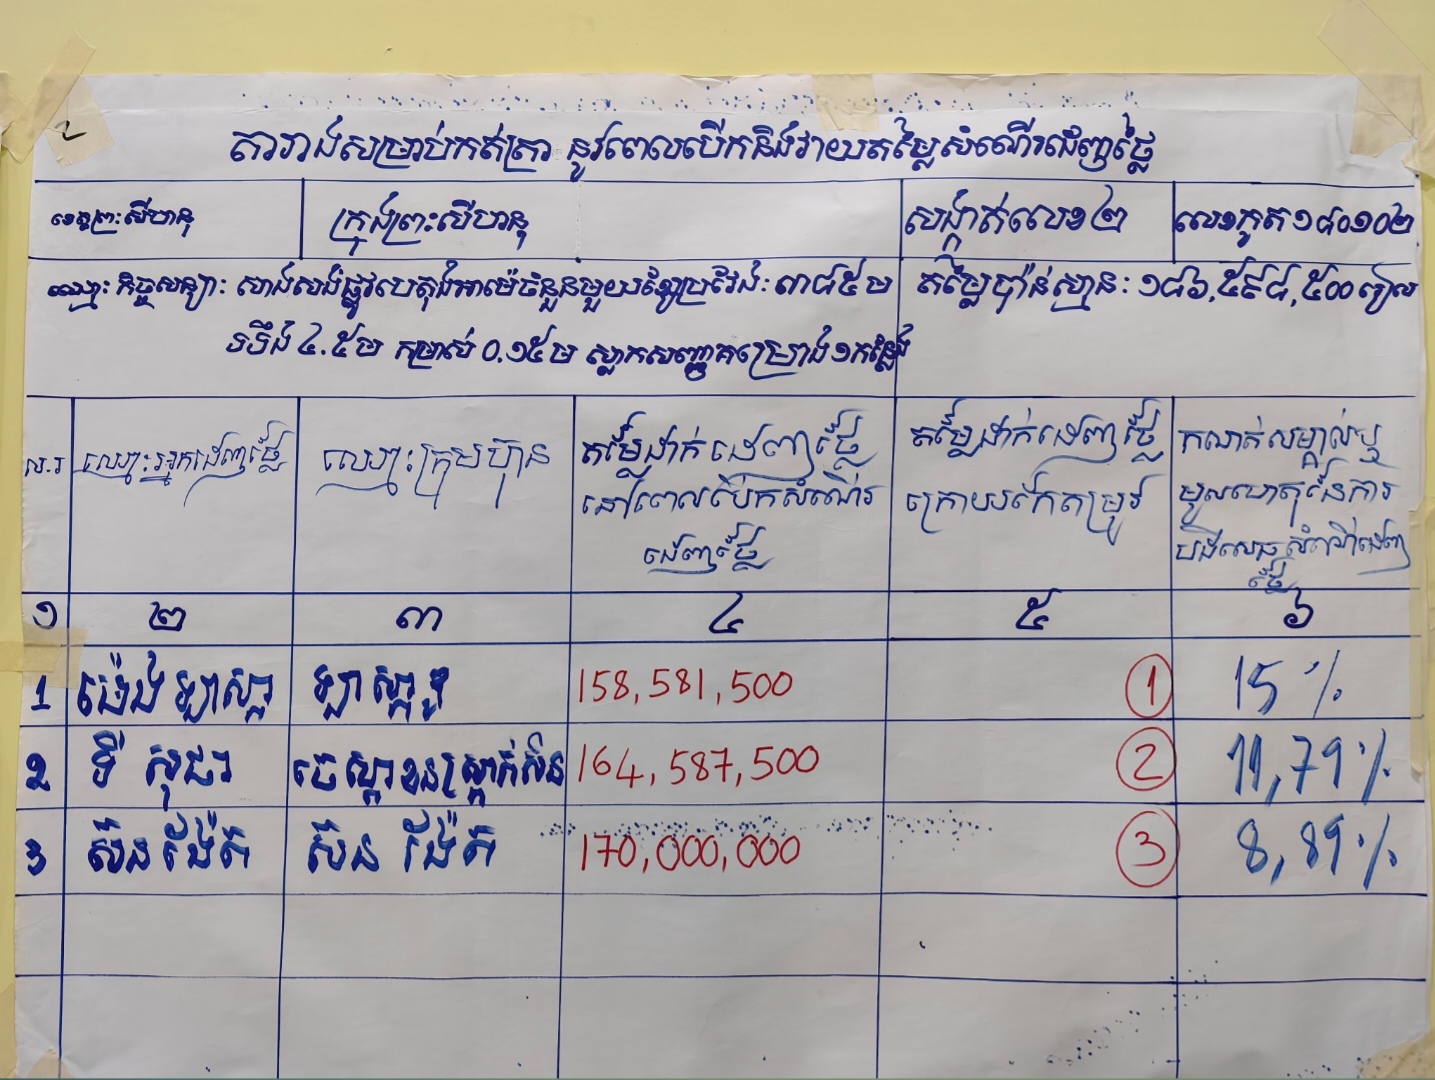 តារាងសម្រាប់កត់ត្រា នូវពេលបើកនិងវាយតម្លៃសំណើរដេញថ្លៃ
ខេត្តព្រះសីហនុ ក្រុងព្រះសីហនុ សង្កាត់លេខ២ លេខកូត១៨០១០២
ឈ្មោះកិច្ចសន្យា: សាងសង់ផ្លូវបេតុងអាម៉េចំនួនមួយខ្សែប្រវែង: ៣៨៥ម តម្លៃប៉ាន់ស្មាន: ១៨៦,៥៩៨,៥០០រៀល
ទទឹង ៤.៥ម កម្រាស់ 0.១៥ម ស្លាកសញ្ញាគម្រោង១កន្លែង
ល.រ ឈ្មោះអ្នកដេញថ្លៃ ឈ្មោះក្រុមហ៊ុន តម្លៃដាក់ដេញថ្លៃ តម្លៃដាក់ដេញថ្លៃ កំណត់សម្គាល់ឬ
នៅពេលបើកសំណើរ ក្រោយកែតម្រូវ មូលហេតុនៃការ
ដេញថ្លៃ បដិសេធសំណើដេញ
ថ្លៃ
១ ២ ៣ ៤ ៥ ៦
1 ម៉េង ឡាស្កា 158,581,500 1 15 %
2 ទី សុជា 164,587,500 2 11,79 %
3 ស៊ន ង៉ែត ស៊ន ង៉ែត 170,000,000 3 8,89 %